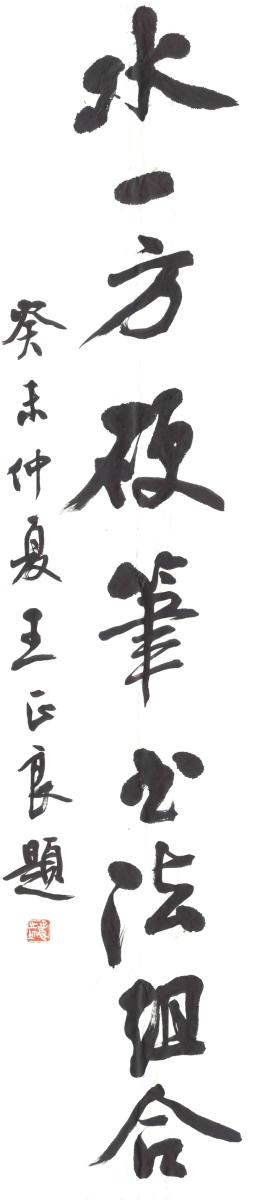 水一方硬筆书法组合
癸未仲夏王正良題